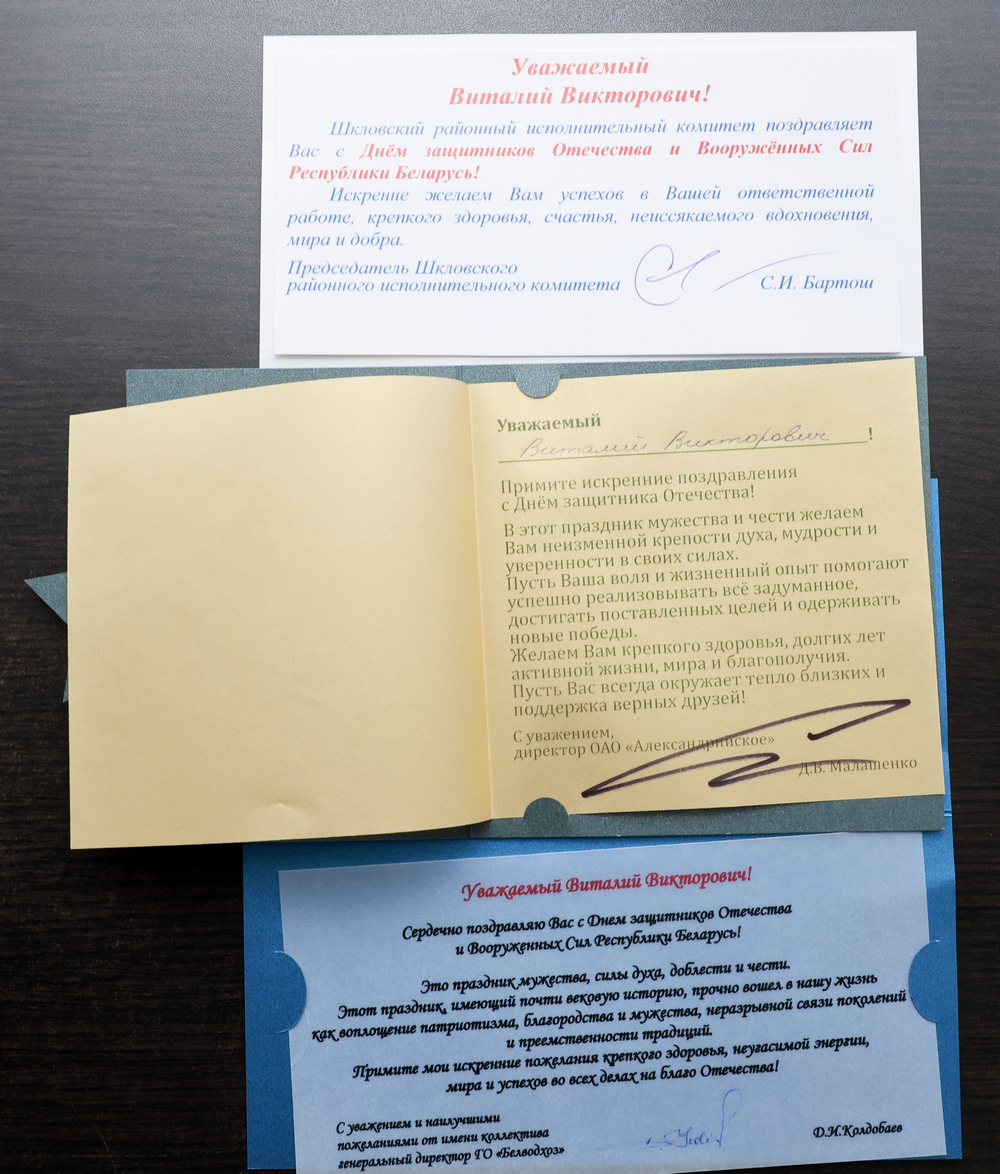 Уважаемый
Виталий Викторович!
Шкловский районный исполнительный комитет поздравляет
Вас с Днём защитников Отечества и Вооружённых Сил
Республики Беларусь!
Искренне желаем Вам успехов в Вашей ответственной
работе, крепкого здоровья, счастья, неиссякаемого вдохновения,
мира и добра.
Председатель Шкловского
районного исполнительного комитета С.И. Бартош
Уважаемый
Виталий Викторович!
Примите искренние поздравления
с Днём защитника Отечества!
В этот праздник мужества и чести желаем
Вам неизменной крепости духа, мудрости и
уверенности в своих силах.
Пусть Ваша воля и жизненный опыт помогают
успешно реализовывать всё задуманное,
достигать поставленных целей и одерживать
новые победы.
Желаем Вам крепкого здоровья, долгих лет
активной жизни, мира и благополучия.
Пусть Вас всегда окружает тепло близких и
поддержка верных друзей!
С уважением,
директор ОАО «Александрийское»
Д.В. Малашенко
Уважаемый Виталий Викторович!
Сердечно поздравляю Вас с Днем защитников Отечества
и Вооруженных Сил Республики Беларусь!
Это праздник мужества, силы духа, доблести и чести.
Этот праздник, имеющий почти вековую историю, прочно вошел в нашу жизнь
как воплощение патриотизма, благородства и мужества, неразрывной связи поколений
и преемственности традиций.
Примите мои искренние пожелания крепкого здоровья, неугасимой энергии,
мира и успехов во всех делах на благо Отечества!
С уважением и наилучшими
пожеланиями от имени коллектива
генеральный директор ГО «Белводхоз»
Д.Н.Колдобаев